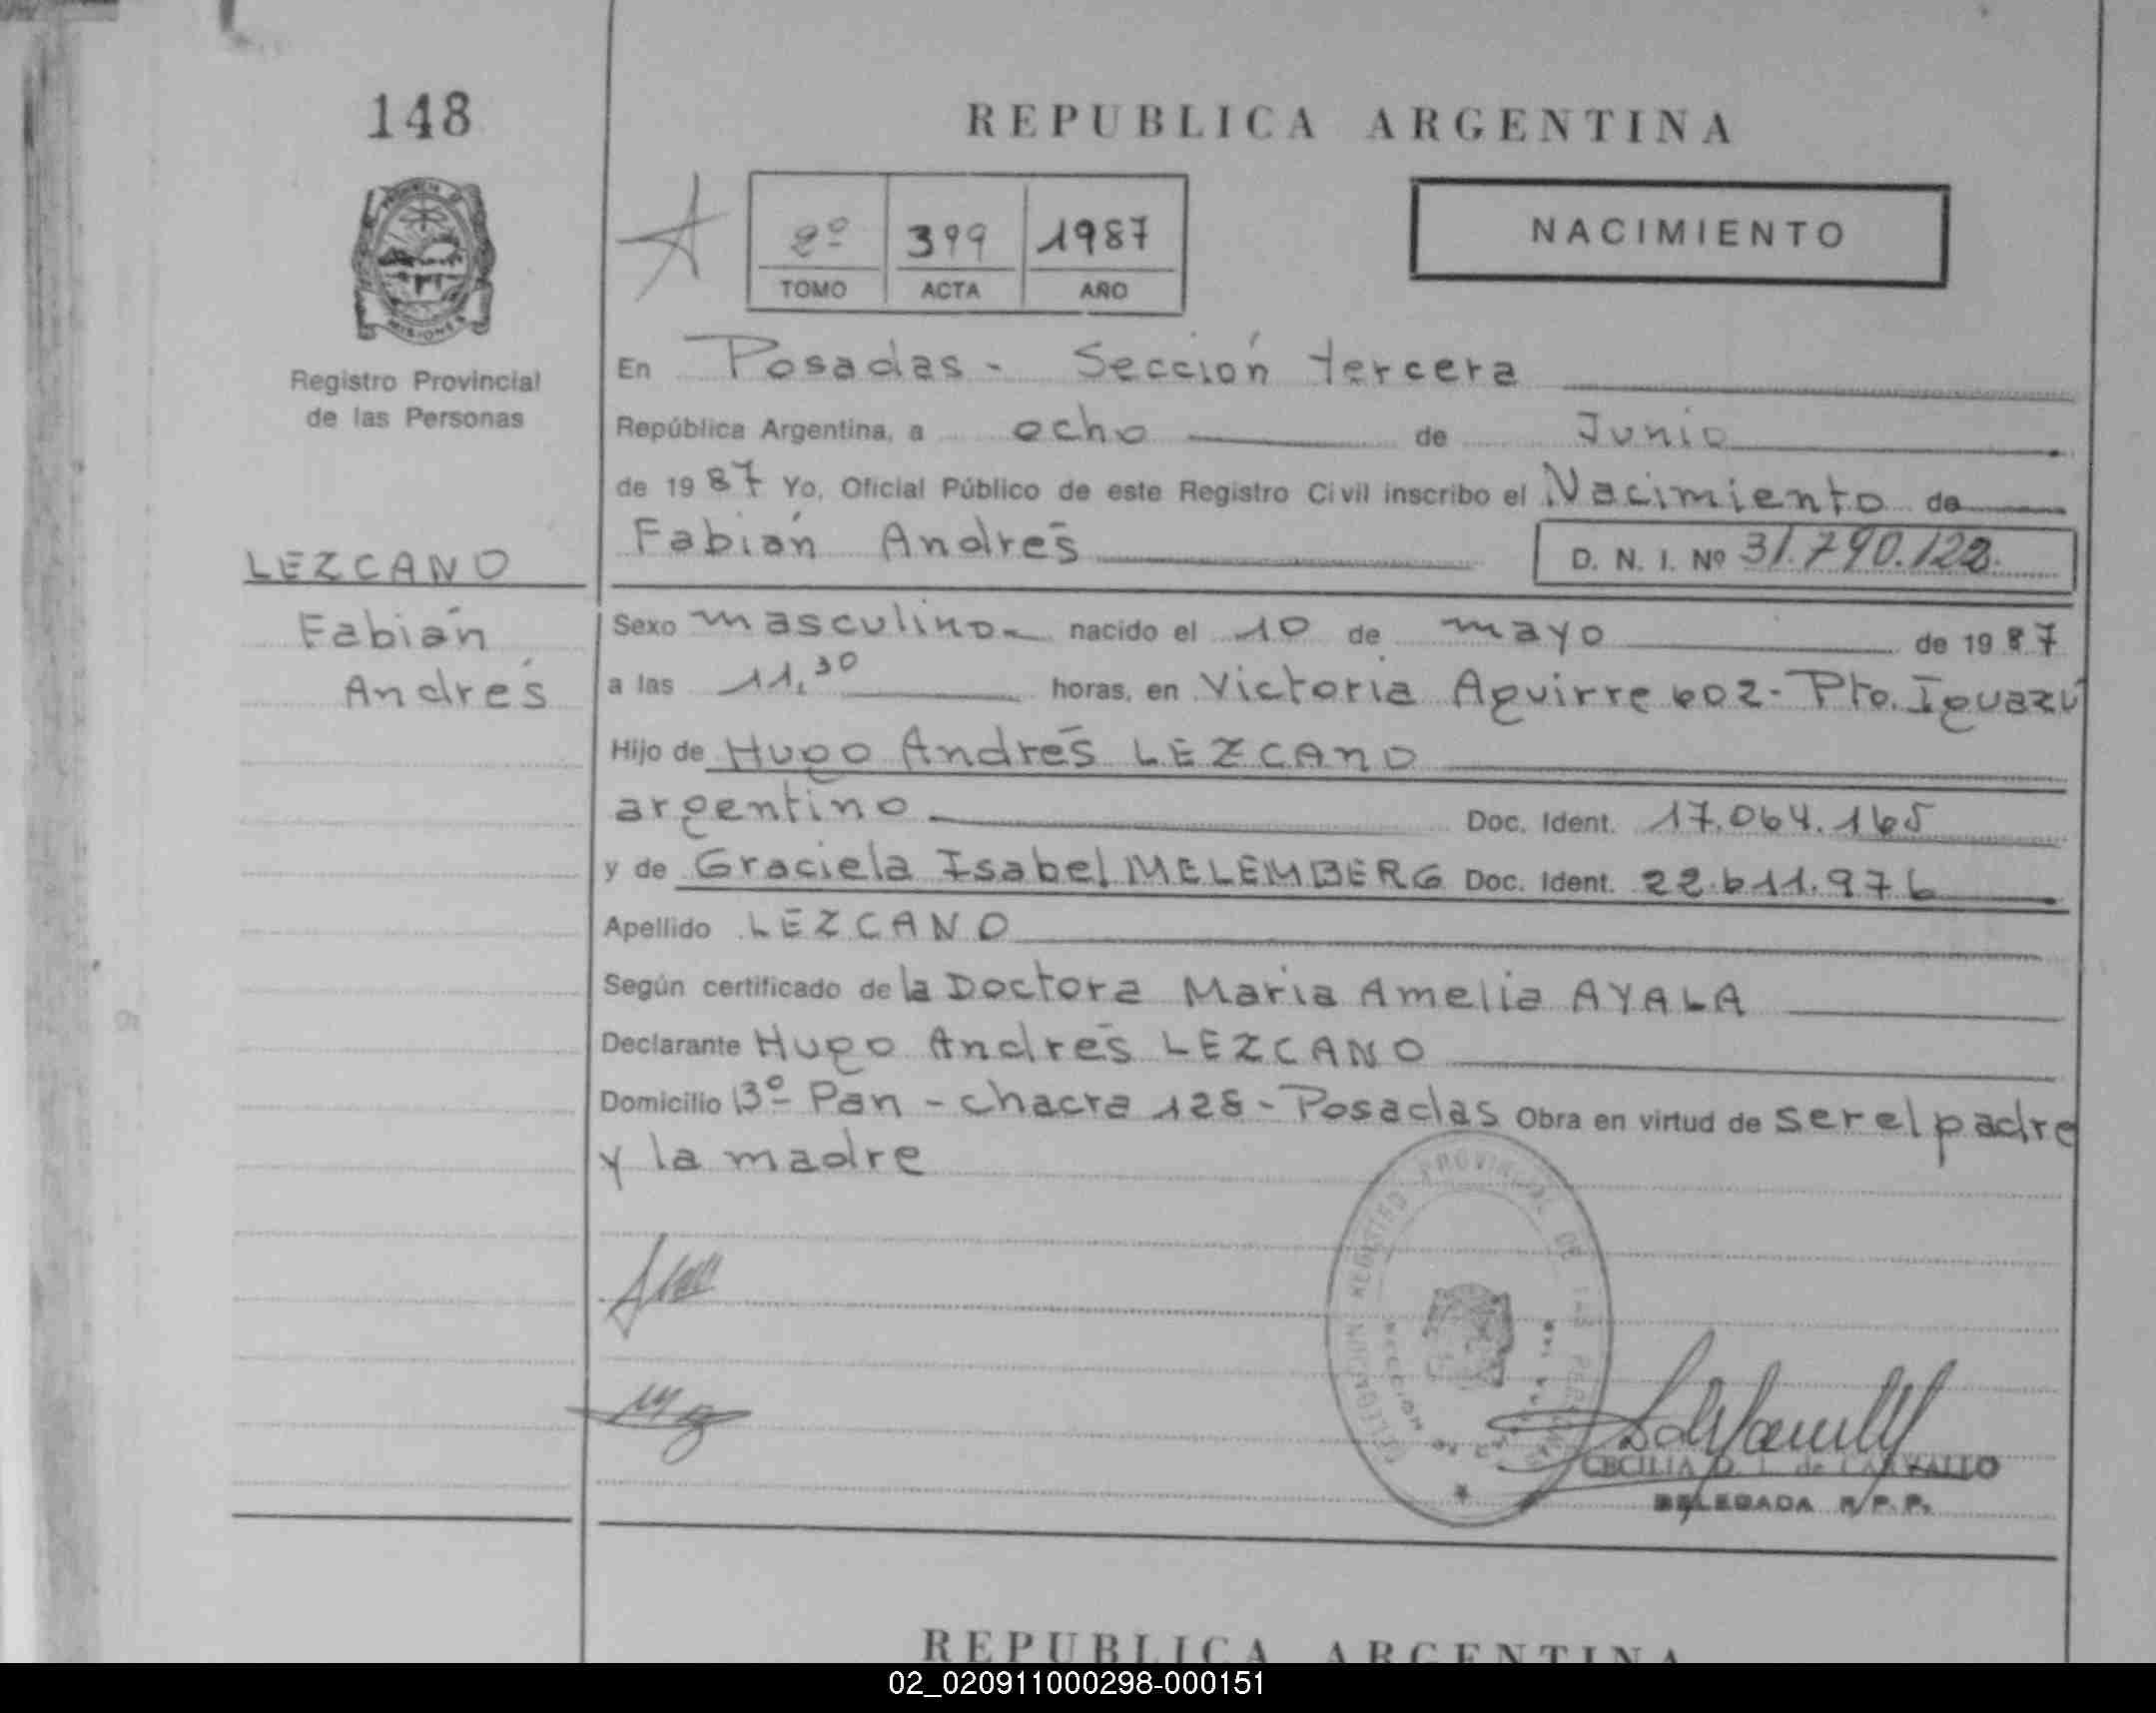 148
REPUBLICA ARGENTINA
2º 399 1987
TOMO ACTA AÑO
NACIMIENTO
MISIONES
Registro Provincial
de las Personas
En Posadas - Sección tercera
República Argentina, a ocho de Junio
de 1987 Yo, Oficial Público de este Registro Civil inscribo el Nacimiento de
Fabián Andrés
D. N. I. Nº 31.790.122
LEZCANO
Fabián
Andrés
Sexo masculino.- nacido el 10 de mayo de 1987
a las 11,30 horas, en Victoria Aguirre 602 - Pto. Iguazú
Hijo de Hugo Andrés LEZCANO
argentino Doc. Ident. 17.064.165
y de Graciela Isabel MELEMBERG Doc. Ident. 22.611.976
Apellido LEZCANO
Según certificado de la Doctora Maria Amelia AYALA
Declarante Hugo Andrés LEZCANO
Domicilio Bº Pan - chacra 128 - Posadas Obra en virtud de ser el padre
y la madre
DELEGACION REGISTRO PROVINCIAL DE LAS PERSONAS
SECCION
CECILIA D. L. de CARVALLO
DELEGADA R.P.P.
REPUBLICA ARGENTINA
02_020911000298-000151